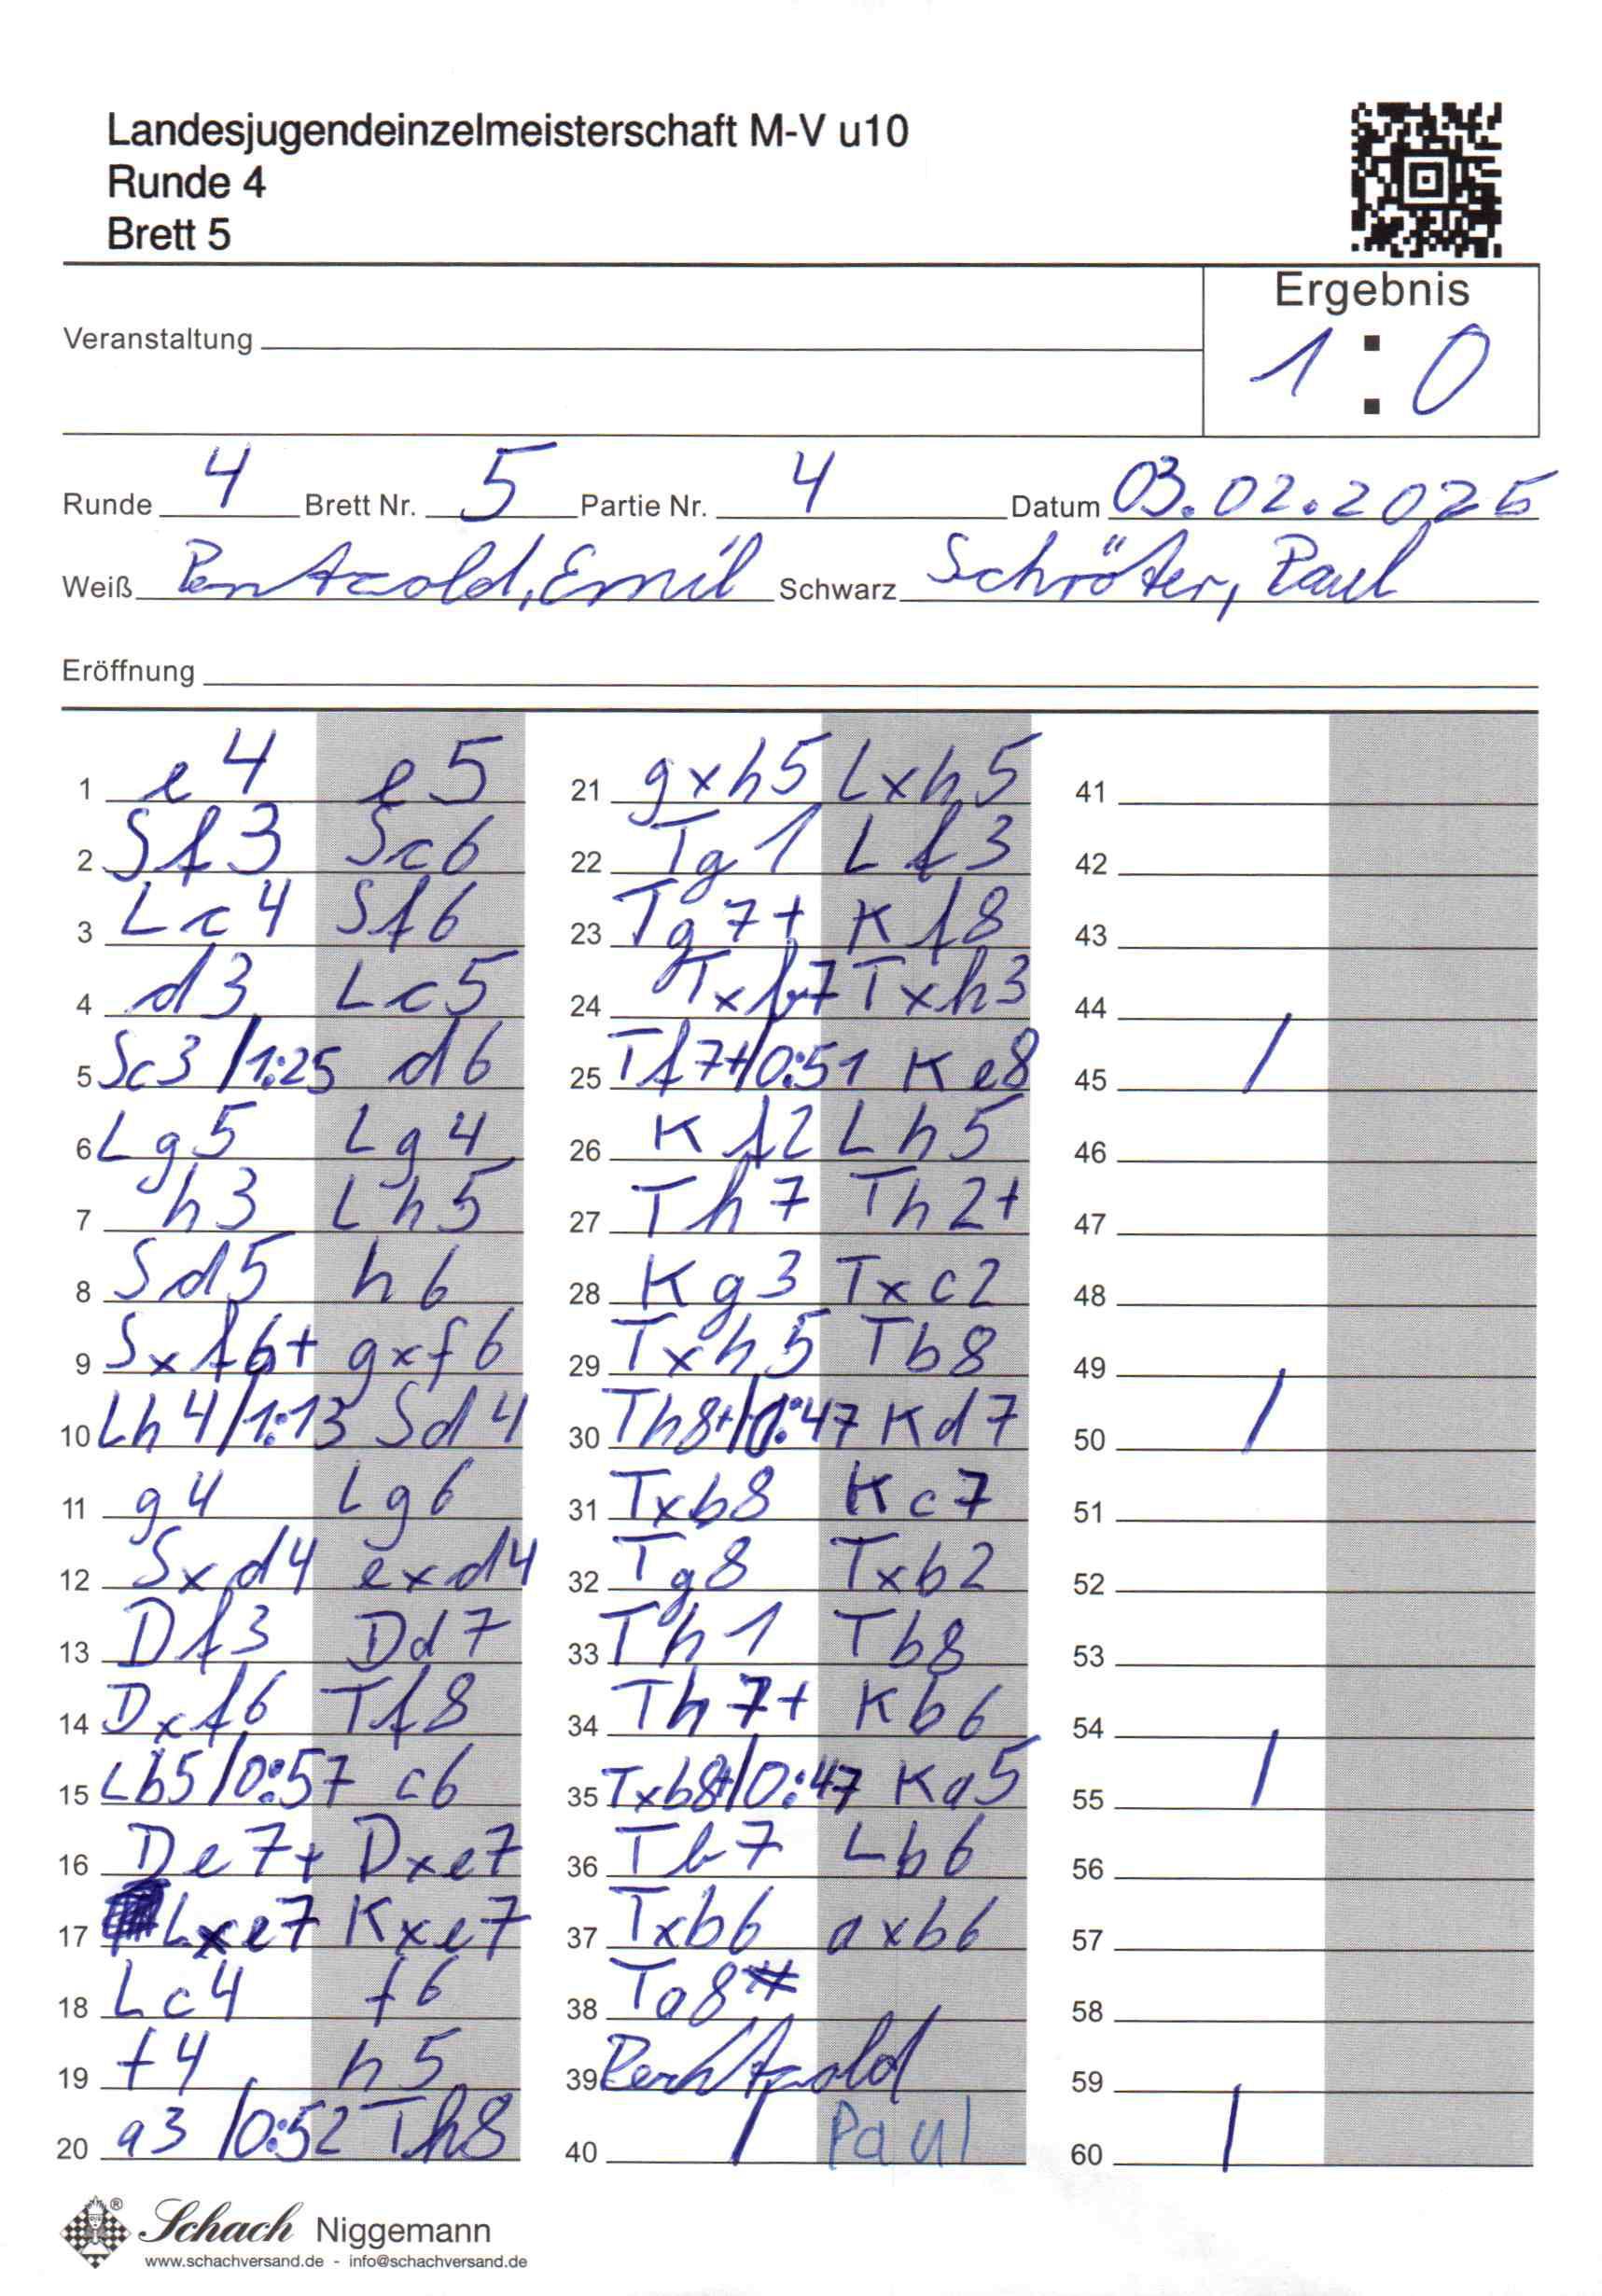 Landesjugendeinzelmeisterschaft M-V u10
Runde 4
Brett 5
Ergebnis
1 : 0
Veranstaltung
Runde 4 Brett Nr. 5 Partie Nr. 4 Datum 03.02.2025
Weiß Pentzold, Emil Schwarz Schröter, Paul
Eröffnung
1 e4 e5
2 Sf3 Sc6
3 Lc4 Sf6
4 d3 Lc5
5 Sc3 /1:25 d6
6 Lg5 Lg4
7 h3 Lh5
8 Sd5 h6
9 Sxf6+ gxf6
10 Lh4 /1:13 Sd4
11 g4 Lg6
12 Sxd4 exd4
13 Df3 Dd7
14 Dxf6 Tf8
15 Lb5 /0:57 c6
16 De7+ Dxe7
17 Lxe7 Kxe7
18 Lc4 f6
19 f4 h5
20 a3 /0:52 Th8
21 gxh5 Lxh5
22 Tg1 Lf3
23 Tg7+ Kf8
24 Txb7 Txh3
25 Tf7+/0:51 Ke8
26 Kf2 Lh5
27 Th7 Th2+
28 Kg3 Txc2
29 Txh5 Tb8
30 Th8+/0:47 Kd7
31 Txb8 Kc7
32 Tg8 Txb2
33 Th1 Tb8
34 Th7+ Kb6
35 Txb8+/0:47 Ka5
36 Tb7 Lb6
37 Txb6 axb6
38 Ta8#
39 Pentzold
40 / Paul
41
42
43
44
45 /
46
47
48
49
50 /
51
52
53
54
55 /
56
57
58
59
60 /
Schach Niggemann
www.schachversand.de - info@schachversand.de